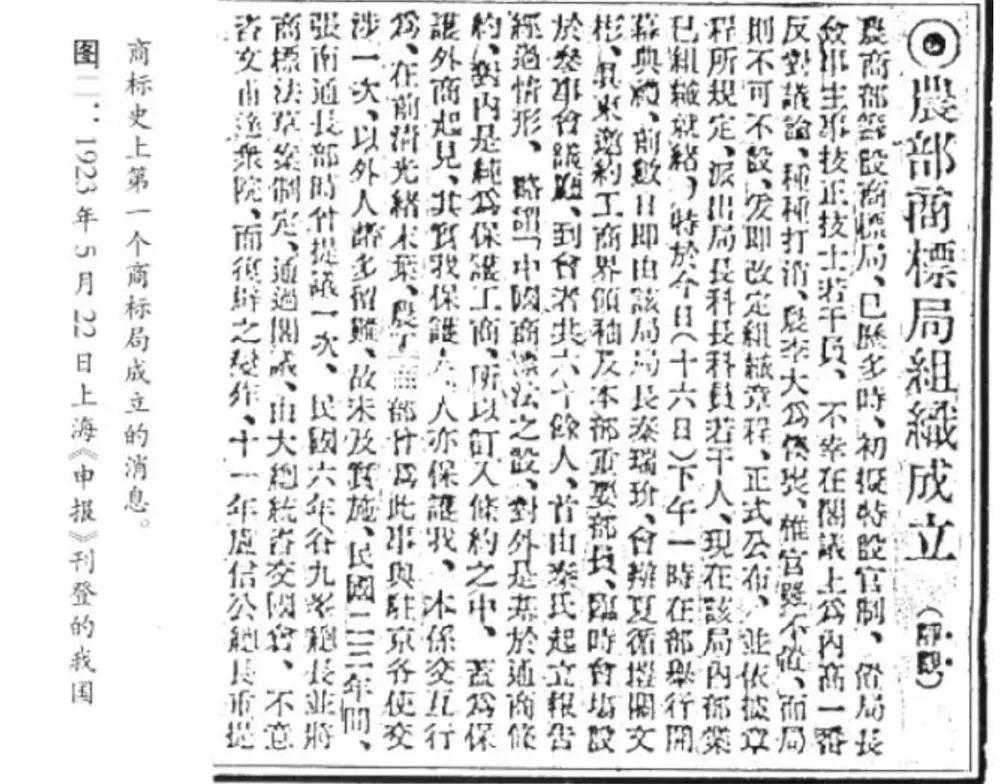 ◉農部商標局組織成立
農商部籌設商標局、已歷多時、初擬特設官制、
主事技正技士若干員、不幸在閣議上爲內高一番
反對議論、種種打消、農李大爲懊喪、惟官雖不做、而局
則不可不設、爰即改定組織章程、正式公布、並依據章
程所規定、派出局長科長科員若干人、現在該局內部業
已組織就緒、特於今日(十六日)下午一時在部舉行開
幕典禮、前數日即由該局局長秦瑞玠、會辦夏循塏閎文
彬、具柬邀約工商界領袖及本部重要部員、臨時會場設
於參事會議廳、到會者共六十餘人、首由秦氏起立報告
經過情形、略謂「中國商標法之設、對外是基於通商條
約、對內是純爲保護工商、所以訂入條約之中、蓋爲保
護外商起見、其實我保護人、人亦保護我、本係交互行
爲、在前清光緒末葉、農工商部曾爲此事與駐京各使交
涉一次、以外人諸多留難、故未及實施、民國二三年間、
張南通長部時付提議一次、民國六年谷九峯總長並將
商標法草案制定、通過閣議、由大總統咨交國會、不意
咨文甫達衆院、而復辟之變作、十一年
图二:1923年5月22日上海《申报》刊登的我国
商标史上第一个商标局成立的消息。